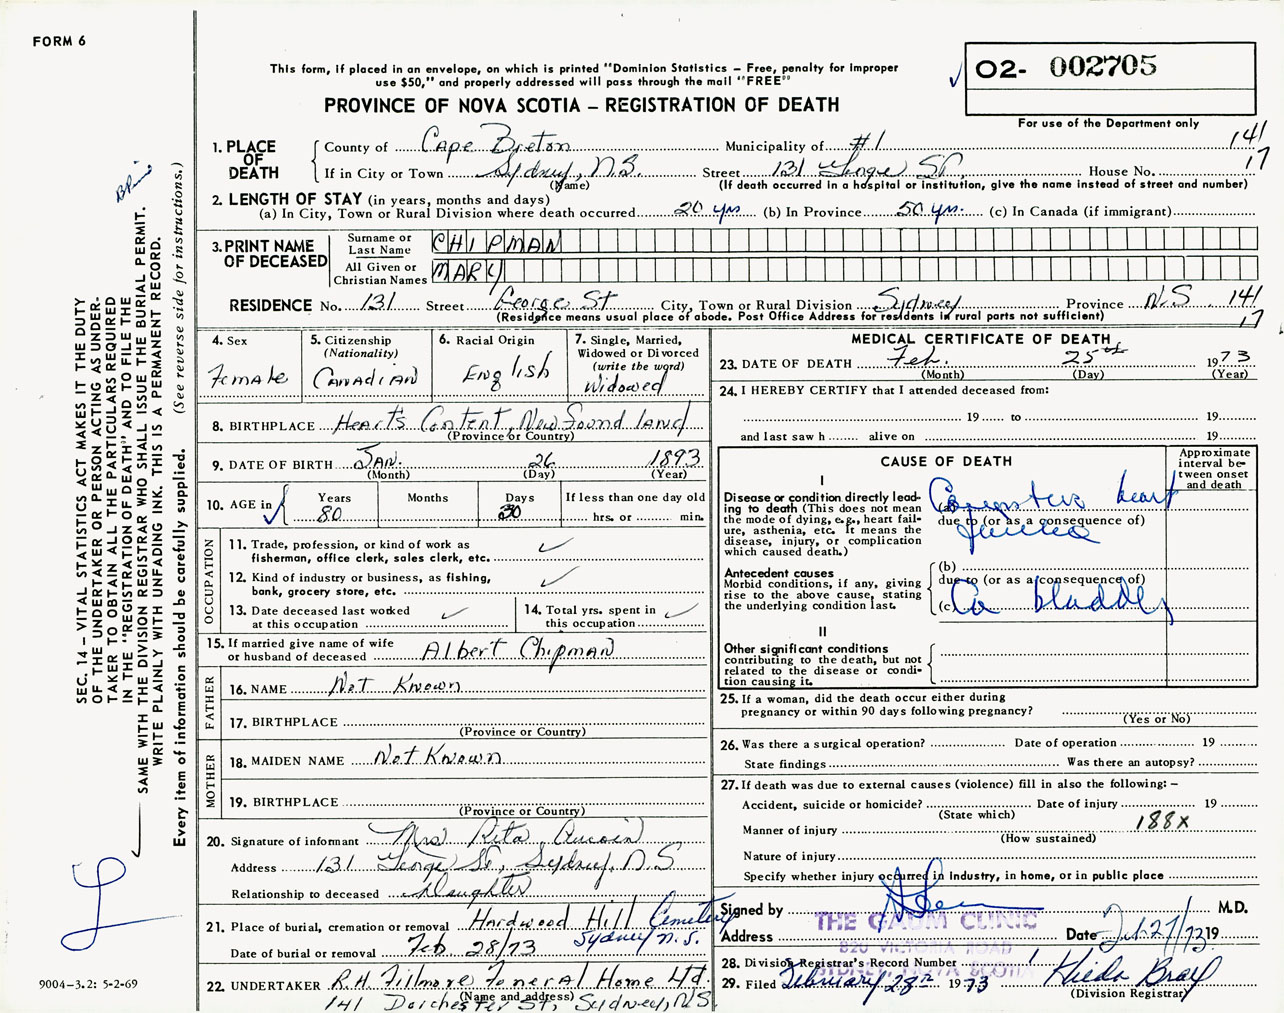 FORM 6
This form, if placed in an envelope, on which is printed "Dominion Statistics – Free, penalty for improper
use $50," and properly addressed will pass through the mail "FREE"
PROVINCE OF NOVA SCOTIA – REGISTRATION OF DEATH
O2- 002705
For use of the Department only
1. PLACE OF DEATH
County of Cape Breton Municipality of #1 141
If in City or Town Sydney, N.S. Street 131 George St, House No. 17
(Name) (If death occurred in a hospital or institution, give the name instead of street and number)
2. LENGTH OF STAY (in years, months and days)
(a) In City, Town or Rural Division where death occurred 20 yrs (b) In Province 50 yrs. (c) In Canada (if immigrant)
3. PRINT NAME OF DECEASED
Surname or Last Name CHIPMAN
All Given or Christian Names MARY
RESIDENCE No. 131 Street George St City, Town or Rural Division Sidney Province N.S 141
(Residence means usual place of abode. Post Office Address for residents in rural parts not sufficient) 17
4. Sex Female
5. Citizenship (Nationality) CANADIAN
6. Racial Origin English
7. Single, Married, Widowed or Divorced (write the word) Widowed
8. BIRTHPLACE Heart's Content, New Found land
(Province or Country)
9. DATE OF BIRTH JAN. 26 1893
(Month) (Day) (Year)
10. AGE in Years 80 Months Days 30 If less than one day old hrs. or min.
OCCUPATION
11. Trade, profession, or kind of work as fisherman, office clerk, sales clerk, etc.
12. Kind of industry or business, as fishing, bank, grocery store, etc.
13. Date deceased last worked at this occupation
14. Total yrs. spent in this occupation
15. If married give name of wife or husband of deceased Albert Chipman
FATHER
16. NAME Not Known
17. BIRTHPLACE
(Province or Country)
MOTHER
18. MAIDEN NAME Not Known
19. BIRTHPLACE
(Province or Country)
20. Signature of informant Mrs Rita Aucoin
Address 131 George St, Sydney, N.S
Relationship to deceased Daughter
21. Place of burial, cremation or removal Hardwood Hill Cemetery
Sydney N.S.
Date of burial or removal Feb 28/73
22. UNDERTAKER R.H. Fillmore Funeral Home Ltd.
(Name and address)
141 Dorchester St, Sydney, N.S.
MEDICAL CERTIFICATE OF DEATH
23. DATE OF DEATH Feb. 25th 1973
(Month) (Day) (Year)
24. I HEREBY CERTIFY that I attended deceased from:
19 to 19
and last saw h alive on 19
CAUSE OF DEATH
Approximate interval between onset and death
I
Disease or condition directly leading to death (This does not mean the mode of dying, e.g., heart failure, asthenia, etc. It means the disease, injury, or complication which caused death.)
(a) heart
due to (or as a consequence of)
Antecedent causes
Morbid conditions, if any, giving rise to the above cause, stating the underlying condition last.
(b)
due to (or as a consequence of)
(c) Ca bladder
II
Other significant conditions contributing to the death, but not related to the disease or condition causing it.
25. If a woman, did the death occur either during pregnancy or within 90 days following pregnancy?
(Yes or No)
26. Was there a surgical operation? Date of operation 19
State findings Was there an autopsy?
27. If death was due to external causes (violence) fill in also the following: –
Accident, suicide or homicide? Date of injury 19
(State which)
Manner of injury 188X
(How sustained)
Nature of injury
Specify whether injury occurred in industry, in home, or in public place
Signed by M.D.
THE GAUM CLINIC
Address Date Feb 27/73 19
820 VICTORIA ROAD
SYDNEY, NOVA SCOTIA
28. Division Registrar's Record Number 1
29. Filed February 28th 1973
(Division Registrar)
SEC. 14 – VITAL STATISTICS ACT MAKES IT THE DUTY
OF THE UNDERTAKER OR PERSON ACTING AS UNDER-
TAKER TO OBTAIN ALL THE PARTICULARS REQUIRED
IN THE "REGISTRATION OF DEATH" AND TO FILE THE
SAME WITH THE DIVISION REGISTRAR WHO SHALL ISSUE THE BURIAL PERMIT.
WRITE PLAINLY WITH UNFADING INK. THIS IS A PERMANENT RECORD.
Every item of information should be carefully supplied. (See reverse side for instructions.)
9004-3.2: 5-2-69